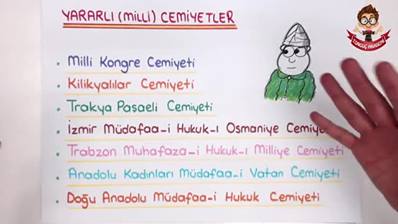 YARARLI (MİLLİ) CEMİYETLER
Milli Kongre Cemiyeti
Kilikyalılar Cemiyeti
Trakya Paşaeli Cemiyeti
İzmir Müdafaa-i Hukuk-ı Osmaniye Cemiyeti
Trabzon Muhafaza-i Hukuk-ı Milliye Cemiyeti
Anadolu Kadınları Müdafaa-i Vatan Cemiyeti
Doğu Anadolu Müdafaa-i Hukuk Cemiyeti